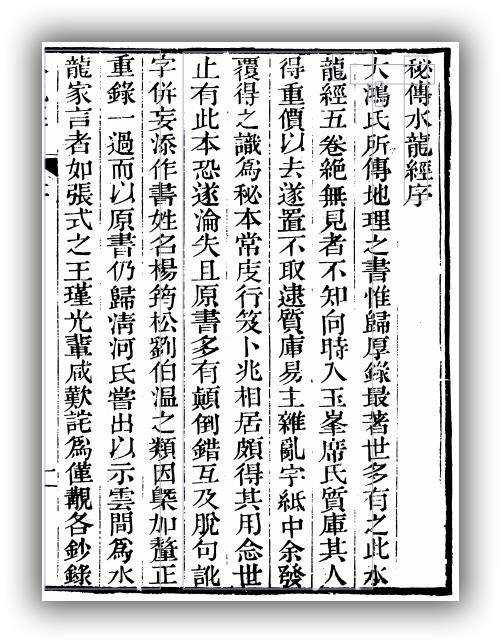 秘傳水龍經序
大鴻氏所傳地理之書惟歸厚錄最著世多有之此水
龍經五卷絶無見者不知向時入玉峯席氏質庫其人
得重價以去遂置不取逮質庫易主雜亂字紙中余發
覆得之識爲秘本常庋行笈卜兆相居頗得其用念世
止有此本恐遂淪失且原書多有顛倒錯互及脫句訛
字併妄添作書姓名楊筠松劉伯溫之類因槩加釐正
重錄一過而以原書仍歸淸河氏嘗出以示雲間爲水
龍家言者如張式之王瑾光輩咸歎詫爲僅觀各鈔錄